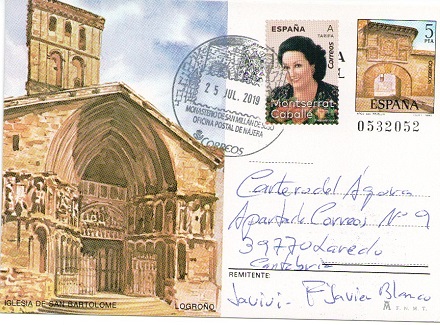 ESPAÑA
A
TARIFA
Correos
Montserrat
Caballé
5
PTA
ESPAÑA
0532052
25 JUL. 2019
MONASTERIO DE SAN MILLÁN DE SUSO
OFICINA POSTAL DE NÁJERA
CORREOS
Apartado Correos Nº 9
39770 Laredo
Cantabria
REMITENTE
Javivi - F Javier Blanco
IGLESIA DE SAN BARTOLOME
LOGROÑO
F.N.M.T.